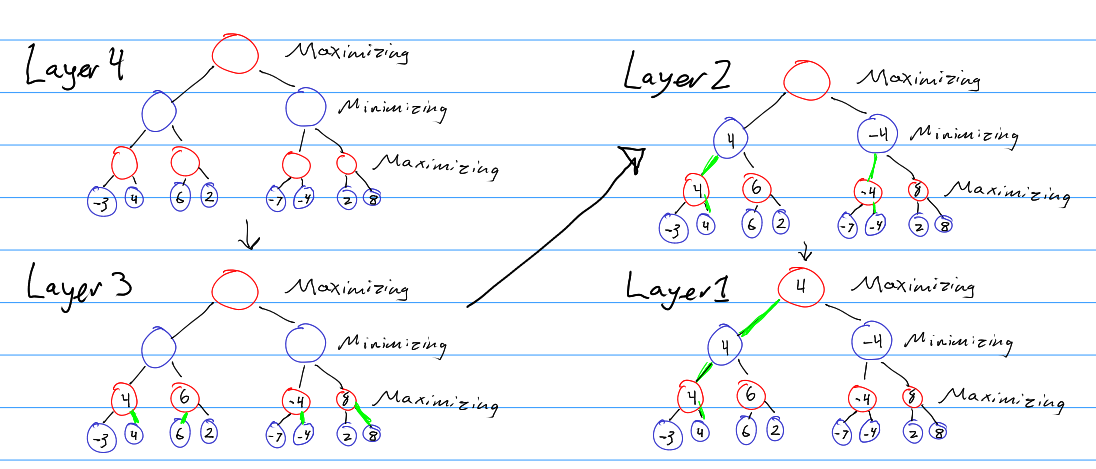 Layer 4
Maximizing
Minimizing
Maximizing
-3 4 6 2 -7 -4 2 8
Layer 3
Maximizing
Minimizing
4 6 -4 8 Maximizing
-3 4 6 2 -7 -4 2 8
Layer 2
Maximizing
4 -4 Minimizing
4 6 -4 8 Maximizing
-3 4 6 2 -7 -4 2 8
Layer 1
4 Maximizing
4 -4 Minimizing
4 6 -4 8 Maximizing
-3 4 6 2 -7 -4 2 8